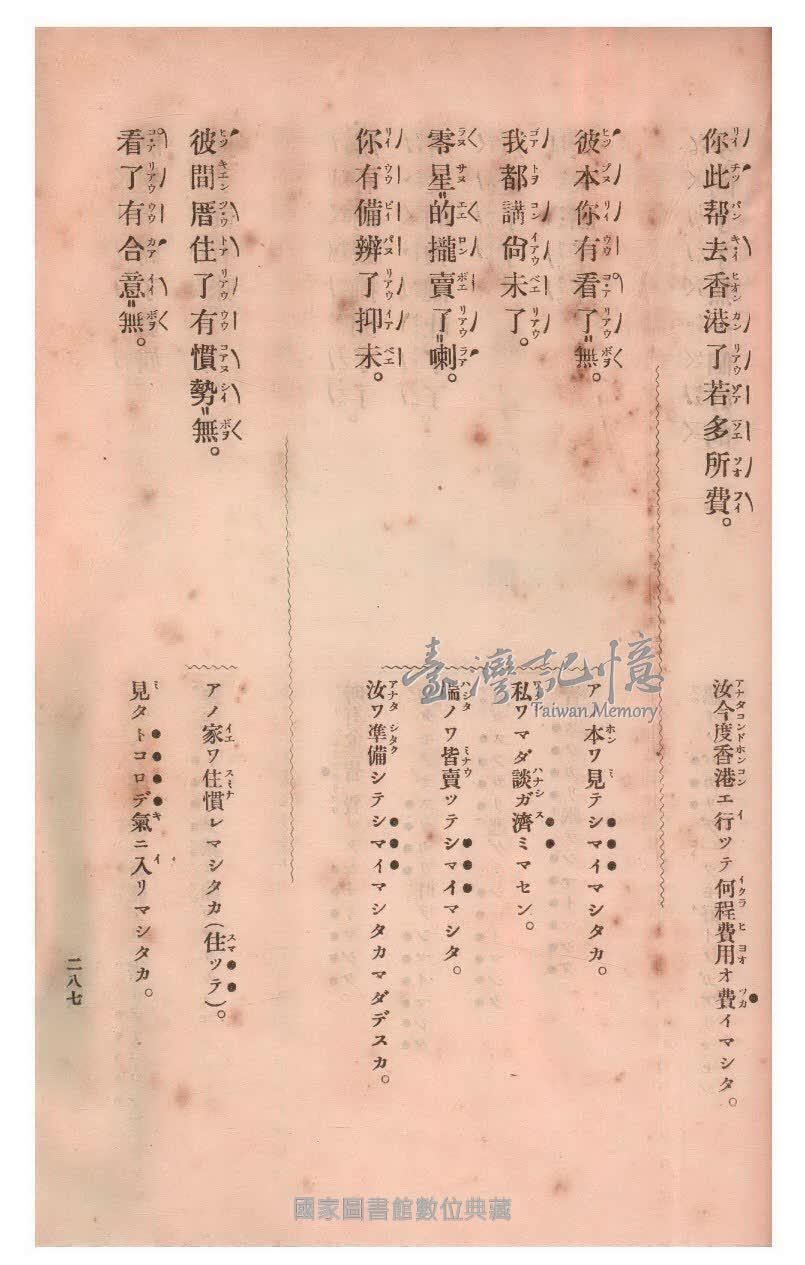 你此帮去香港了若多所費。
汝今度香港エ行ツテ何程費用オ費イマシタ。
彼本你有看了〃無。
ア 本ワ見テシマイマシタカ。
我都講尙未了。
私ワマダ談ガ濟ミマセン。
零星〃的攏賣了〃喇。
ノワ皆賣ツテシマイマシタ。
你有備辨了抑未。
汝ワ準備シテシマイマシタカマダデスカ。
彼間厝住了有慣勢〃無。
アノ家ワ住慣レマシタカ(住ッテ)。
看了有合意〃無。
見タトコロデ氣ニ入リマシタカ。
二八七
臺灣記憶
Taiwan Memory
國家圖書館數位典藏